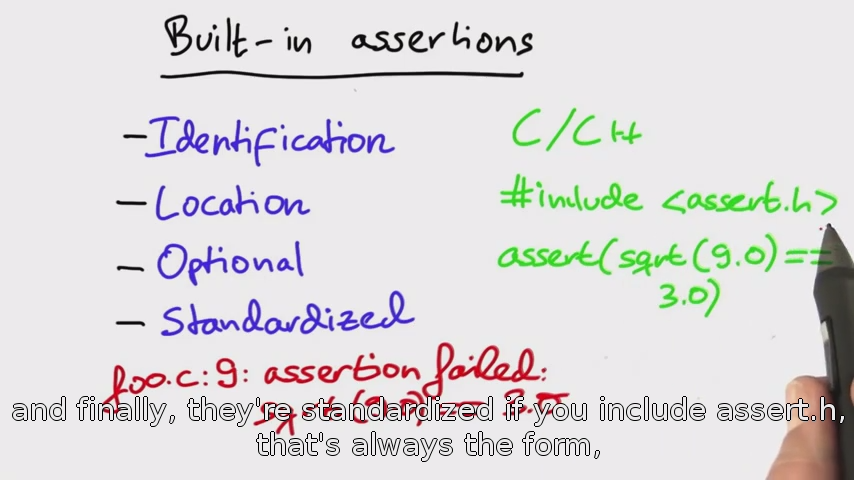 Built-in assertions
- Identification
- Location
- Optional
- Standardized
C/C++
#include <assert.h>
assert(sqrt(9.0)==
3.0)
foo.c:9: assertion failed:
and finally, they're standardized if you include assert.h,
that's always the form,